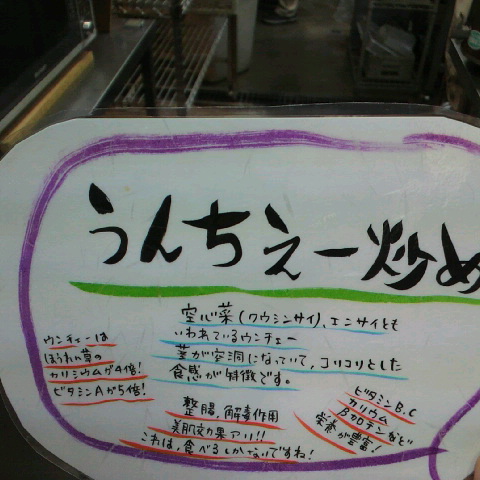 うんちぇー炒め
空心菜(クウシンサイ)、エンサイとも
いわれているウンチェー
茎が空洞になっていて、コリコリとした
食感が特徴です。
ウンチェーは
ほうれん草の
カルシウムが4倍!
ビタミンAが5倍!
整腸、解毒作用
美肌効果アリ!!
これは、食べるしかないですね!
ビタミンB.C
カリウム
βカロテンなど
栄養が豊富!